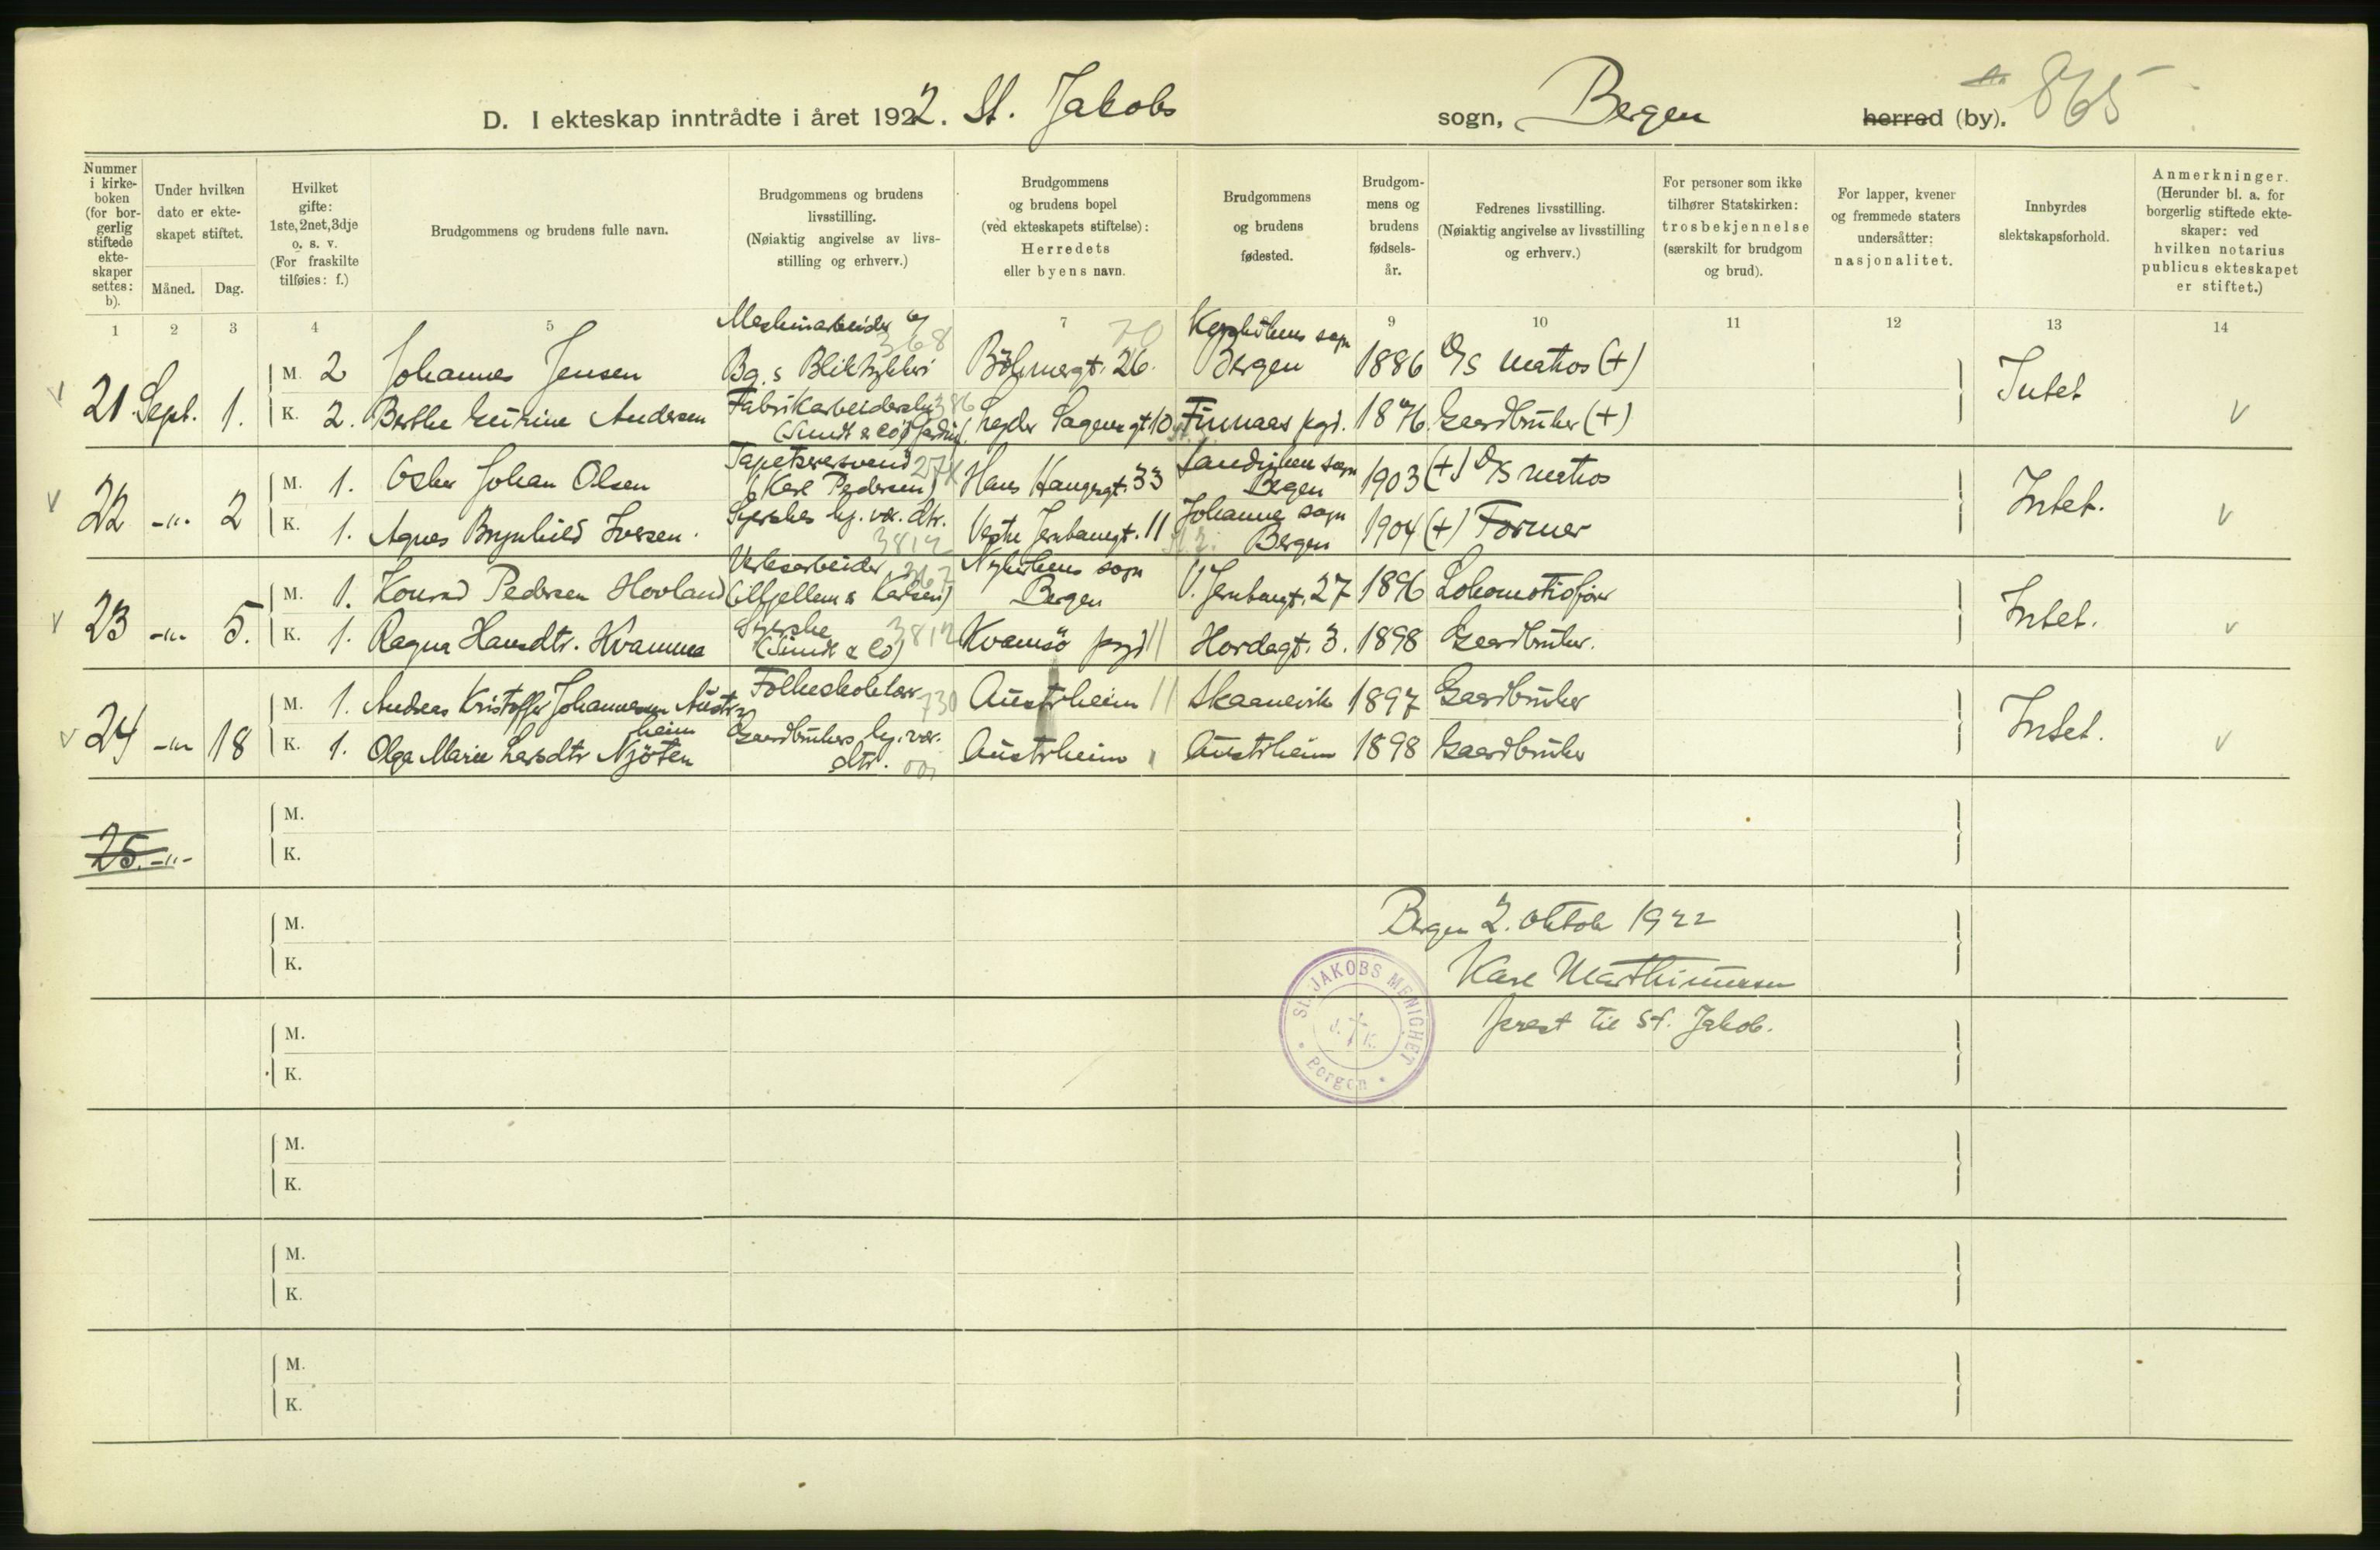 D. I ekteskap inntrådte i året 1922. St. Jakobs sogn, Bergen herred (by). 865
Nummer i kirkeboken (for borgerlig stiftede ekteskaper settes: b).
Under hvilken dato er ekteskapet stiftet.
Måned. Dag.
Hvilket gifte: 1ste, 2net, 3dje o. s. v. (For fraskilte tilføies: f.)
Brudgommens og brudens fulle navn.
Brudgommens og brudens livsstilling. (Nøiaktig angivelse av livsstilling og erhverv.)
Brudgommens og brudens bopel (ved ekteskapets stiftelse): Herredets eller byens navn.
Brudgommens og brudens fødested.
Brudgommens og brudens fødselsår.
Fedrenes livsstilling. (Nøiaktig angivelse av livsstilling og erhverv.)
For personer som ikke tilhører Statskirken: trosbekjennelse (særskilt for brudgom og brud).
For lapper, kvener og fremmede staters undersåtter: nasjonalitet.
Innbyrdes slektskapsforhold.
Anmerkninger. (Herunder bl. a. for borgerlig stiftede ekteskaper: ved hvilken notarius publicus ekteskapet er stiftet.)
1 2 3 4 5 7 9 10 11 12 13 14
21 Sept. 1. M. 2 Johannes Jensen Maskinarbeider Bg.s 368 26. 70 Bergen 1886 D/S matros (+) Intet
K. 2. Berthe Andersen Fabrikarbeiderske (Sundt & Co) 386 10 Finnaas pgd. 1876 Gaardbruker (+)
22 -"- 2 M. 1. Oskar Johan Olsen Tapetserersvend (Karl Pedersen) Hans Haugesgt. 33 Sandviken sogn Bergen 1903 (+) D/S matros Intet.
K. 1. Agnes Brynhild Iversen. Syerske hj. vær. dtr. 3812 Vestre Jernbanegt. 11 Johannes sogn Bergen 1904 (+) Former
23 -"- 5. M. 1. Konrad Pedersen Hovland Verksarbeider (Mjellem & Karlsen) 367 Nykirkens sogn Bergen V. Jernbanegt. 27 1896 Lokomotivfører Intet.
K. 1. Ragna Hansdtr. Kvamme Syerske (Sundt & Co) 3812 Kvamsö pgd Hordagt. 3. 1898 Gaardbruker.
24 -"- 18 M. 1. Andreas Kristoffer Johannessen Austrheim Folkeskolelær 730 Austrheim Skaanevik 1897 Gaardbruker Intet.
K. 1. Olga Marie Larsdtr Njöten Gaardbrukers hj. vær. dtr. Austrheim Austrheim 1898 Gaardbruker
25. -"- M.
K.
M.
K.
Bergen 2. oktob 1922
Karl Marthinussen
prest til St. Jakob.
St. JAKOBS MENIGHET
J. K.
Bergen
M.
K.
M.
K.
M.
K.
M.
K.